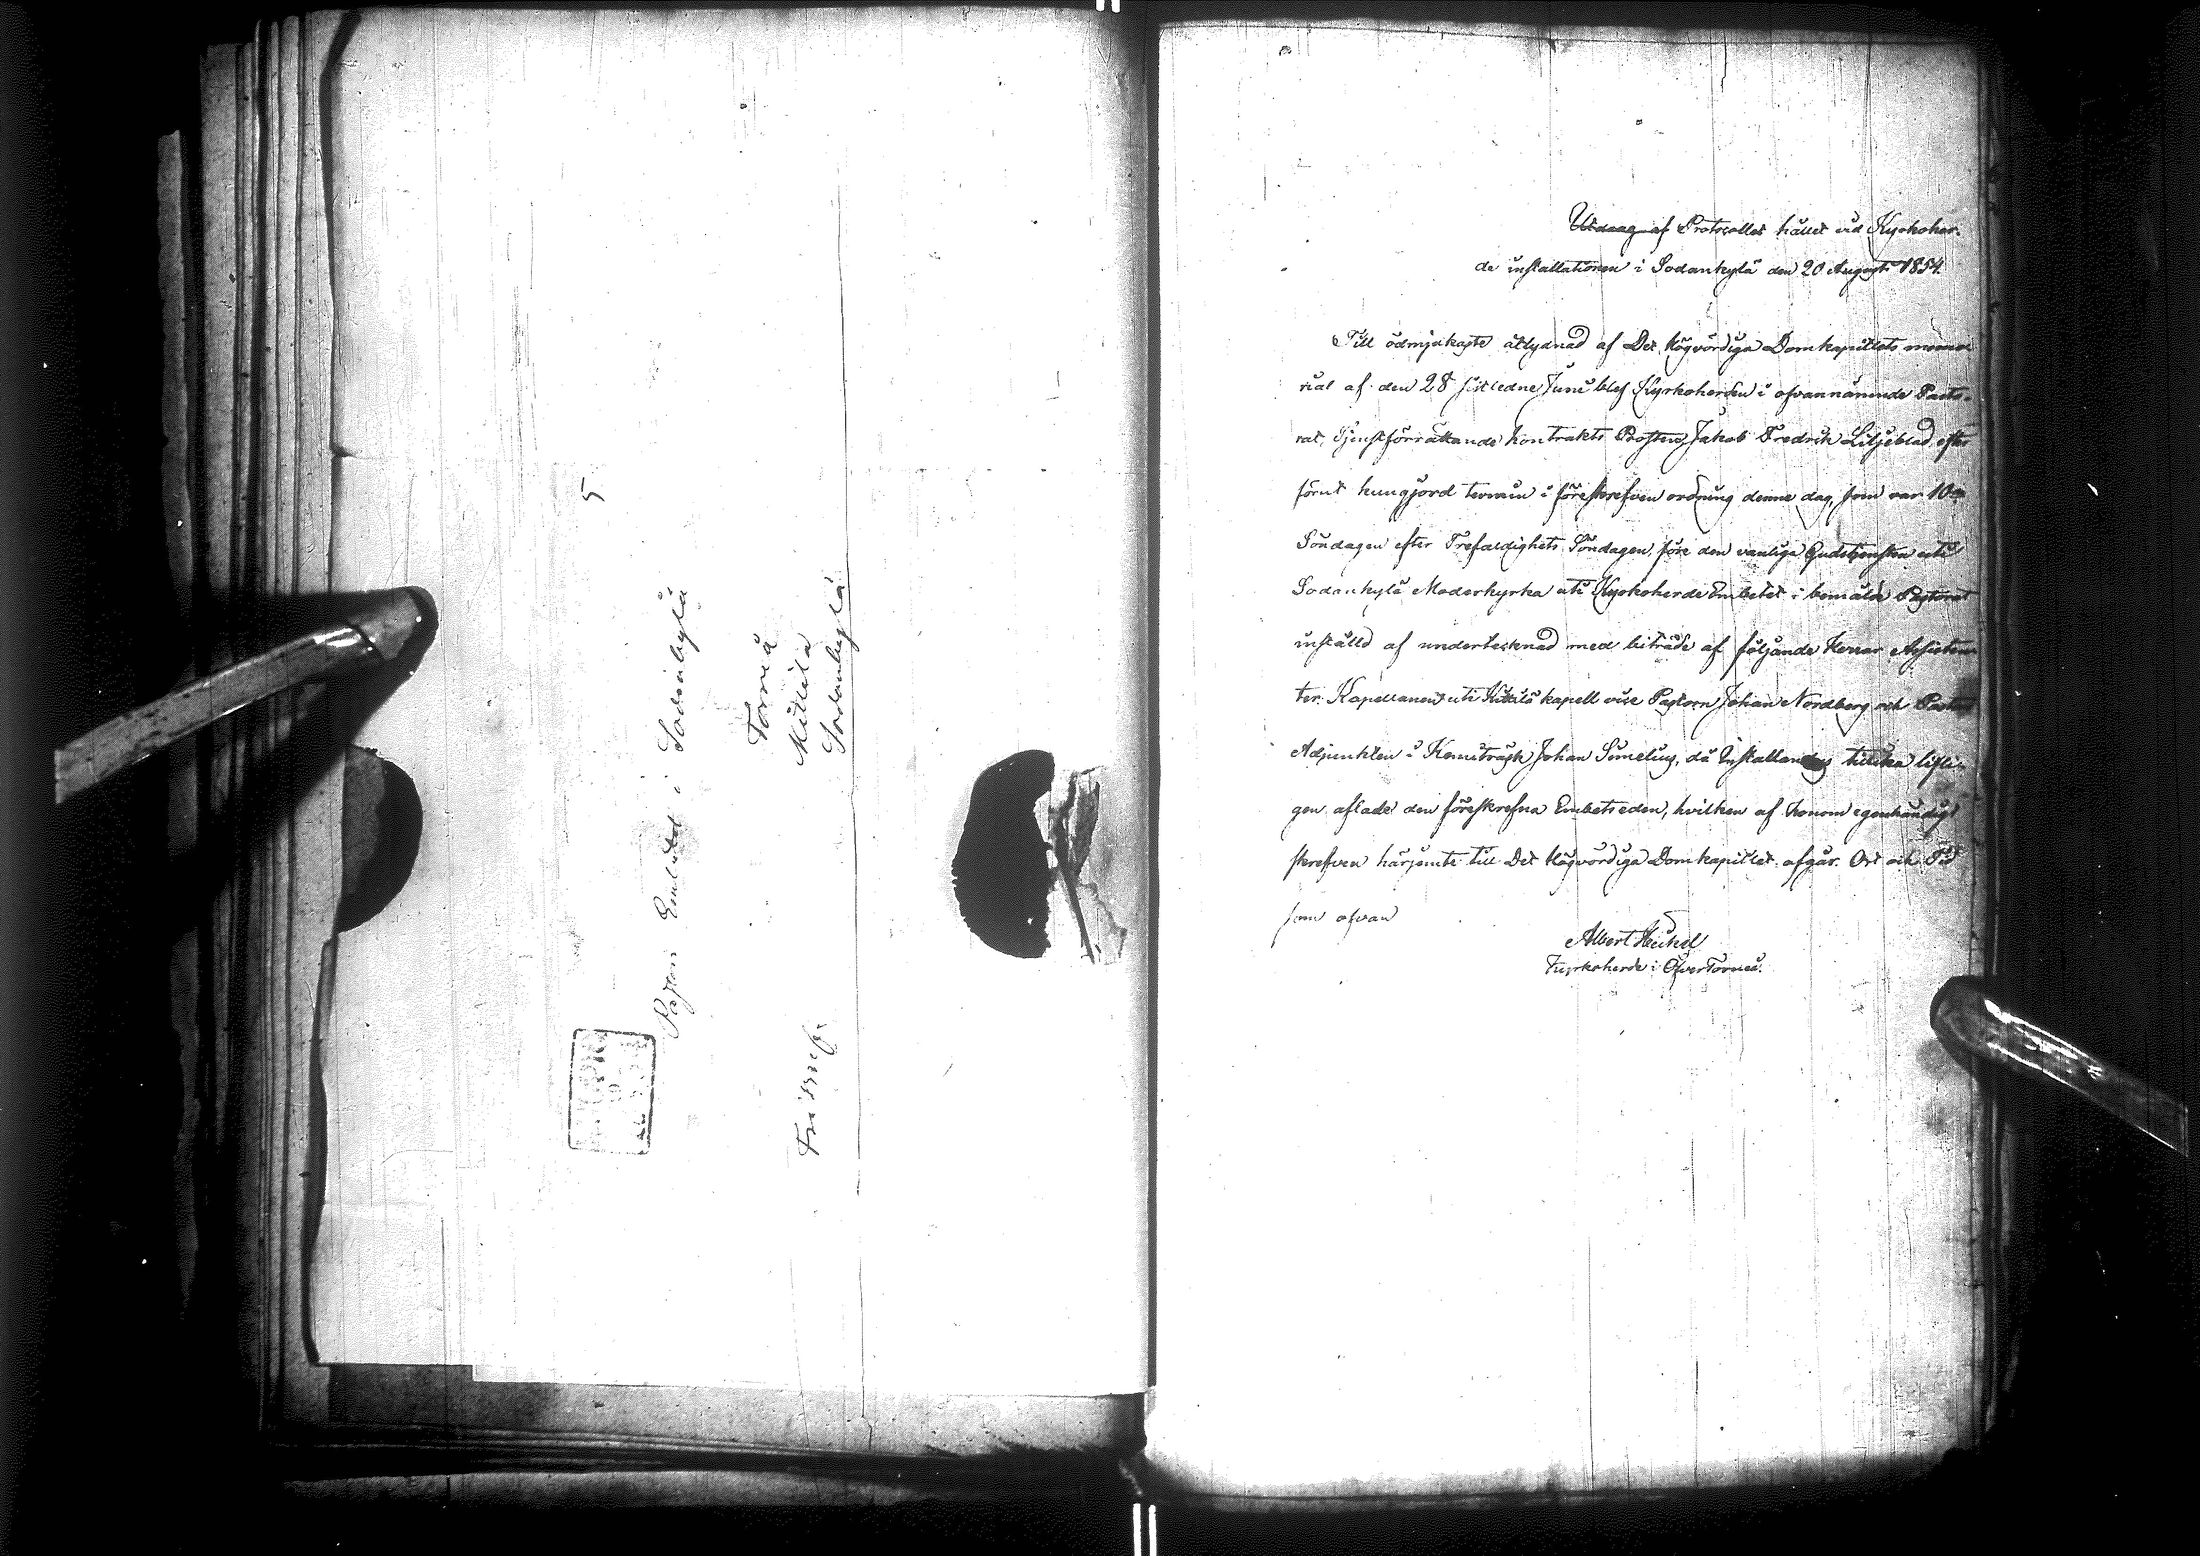 5
Pastors Embetet i Sodankylä
Torneå
Kittilä
Sodankylä
Fribref.
Utdrag af Protocollet hållet vid Kyrkoher-
de installationen i Sodankylä den 20 Augusti 1854.
Till ödmjukaste åtlydnad af Det Högvördiga Domkapitlets memo-
rial af den 28 sistledne Juni blef Kyrkoherden i ofvannämnde Pasto-
rat, Tjenstförrättande Kontrakts Prosten, Jakob Fredrik Liljeblad, efter
förut kungjord termin i föreskrefven ordning denne dag, som var 10de
Söndagen efter Trefaldighets Söndagen, före den vanliga Gudstjensten uti
Sodankylä Moderkyrka uti Kyrkoherde Embetet i bemälde Pastorat
inställd af undertecknad med biträde af följande Herrar Assisten-
ter: Kapellanen uti Kittilä kapell vice Pastorn Johan Nordberg och Pastors
Adjunkten i Kemiträsk Johan Simelius, då Installandus tillika lifli-
gen aflade den föreskrefna Embetseden, hvilken af honom egenhändigt
skrefven härjemte till Det Högvördiga Domkapitlet afgår. Ort och Tid
som ofvan
Albert Heikel
Kyrkoherde i ÖfverTorneå.